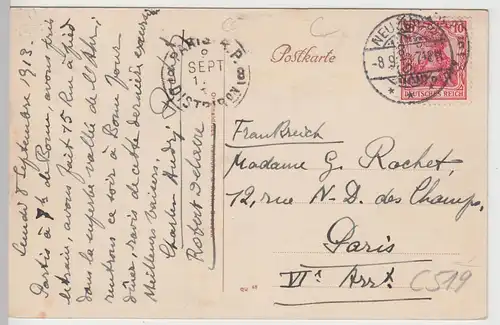 Lundi 8 Septembre 1913.
Partis à 7h de Bonn, avons pris
le train, avons fait 15 Km à pied
dans la superbe vallée de l'Ahr;
rentrons ce soir à Bonn pour
dîner, ravis de cette dernière excursion
Meilleurs baisers.
Charles Andy Rochet
Robert Delierre
PARIS
SEPT
DISTRIBUTION
Postkarte
NEUENAHR
-8.9.13
10
DEUTSCHES REICH
Frankreich
Madame G. Rochet,
12, rue N-D. des Champs,
Paris
VIe Arrt.
C519